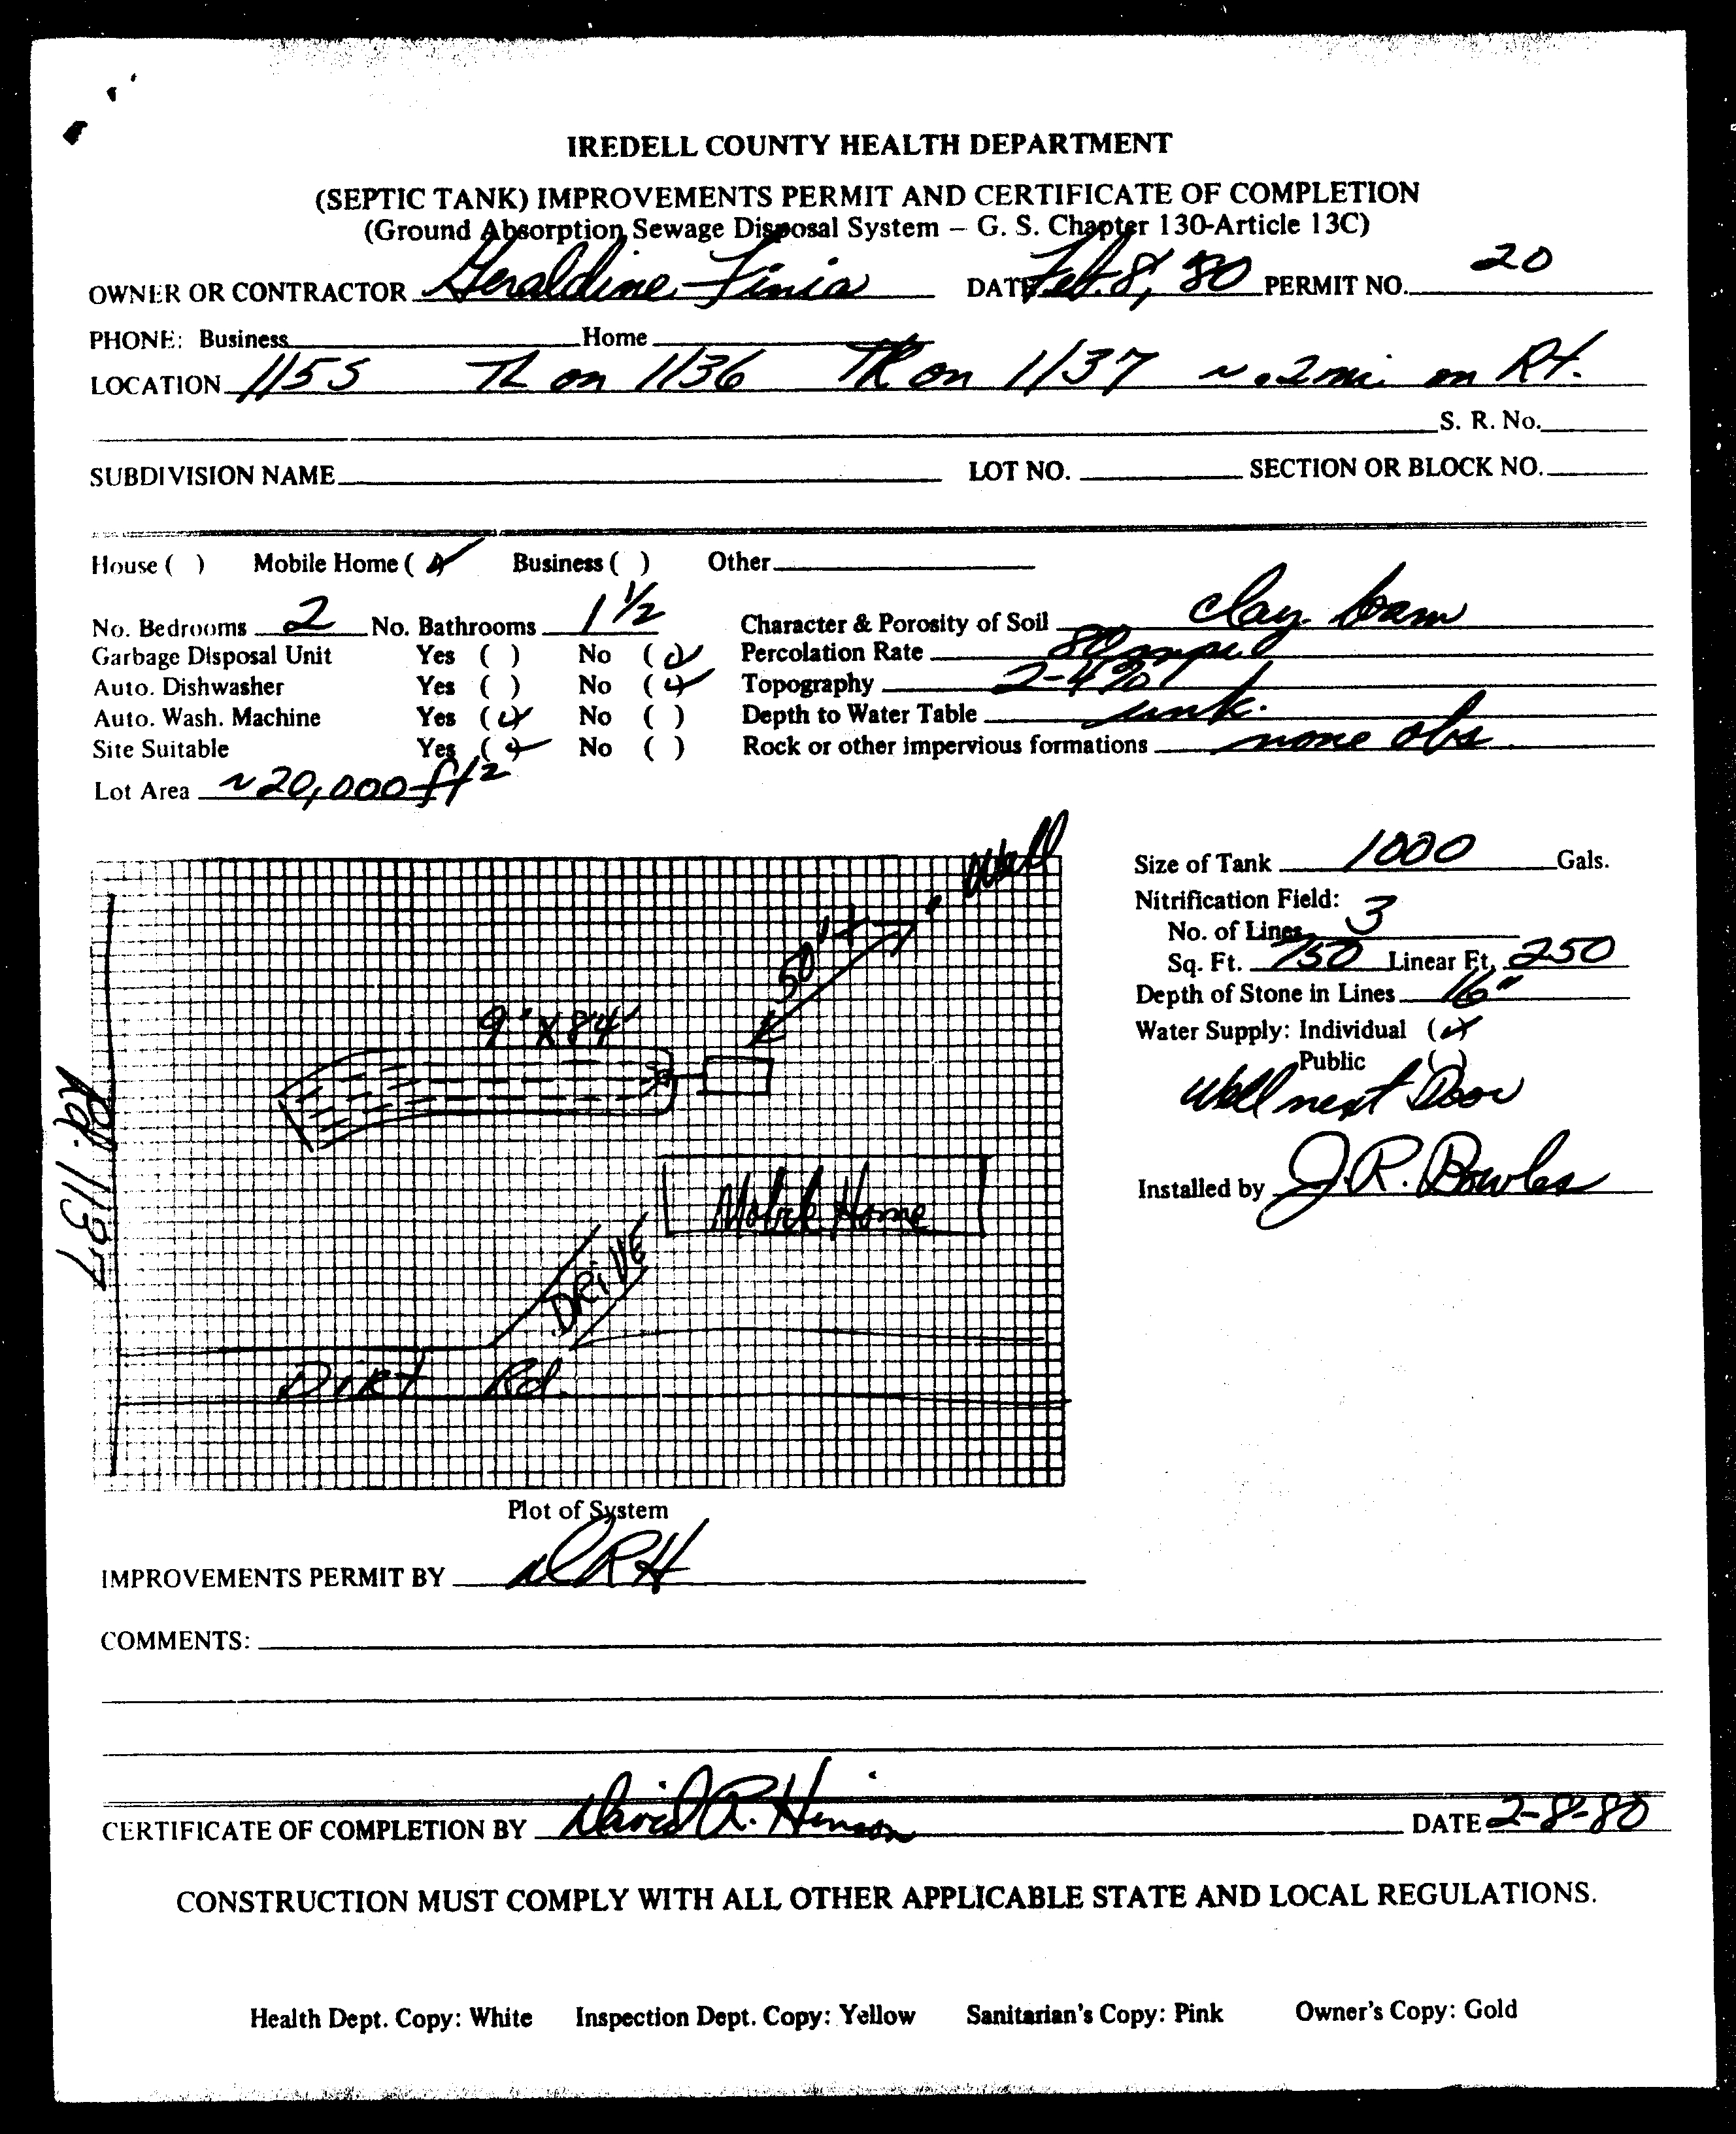 IREDELL COUNTY HEALTH DEPARTMENT
(SEPTIC TANK) IMPROVEMENTS PERMIT AND CERTIFICATE OF COMPLETION
(Ground Absorption Sewage Disposal System – G. S. Chapter 130-Article 13C)
OWNER OR CONTRACTOR Geraldine Finia DATE Feb. 8, 80 PERMIT NO. 20
PHONE: Business Home
LOCATION 115S TL on 1136 TR on 1137 ~ .2 mi on Rt.
S. R. No.
SUBDIVISION NAME LOT NO. SECTION OR BLOCK NO.
House ( ) Mobile Home (✓) Business ( ) Other
No. Bedrooms 2 No. Bathrooms 1 1/2 Character & Porosity of Soil clay loam
Garbage Disposal Unit Yes ( ) No (✓) Percolation Rate 80 mpi
Auto. Dishwasher Yes ( ) No (✓) Topography 2-4%
Auto. Wash. Machine Yes (✓) No ( ) Depth to Water Table unk.
Site Suitable Yes (✓) No ( ) Rock or other impervious formations none obs
Lot Area ~20,000 ft2
Well
50'+
9" X 84'
Rd. 1137
Mobile Home
DRIVE
Dirt Rd.
Size of Tank 1000 Gals.
Nitrification Field:
No. of Lines 3
Sq. Ft. 750 Linear Ft. 250
Depth of Stone in Lines 16"
Water Supply: Individual (✓)
Public ( )
Well next Door
Installed by J.R. Bowles
Plot of System
IMPROVEMENTS PERMIT BY DRH
COMMENTS:
CERTIFICATE OF COMPLETION BY David R. Henson DATE 2-8-80
CONSTRUCTION MUST COMPLY WITH ALL OTHER APPLICABLE STATE AND LOCAL REGULATIONS.
Health Dept. Copy: White Inspection Dept. Copy: Yellow Sanitarian's Copy: Pink Owner's Copy: Gold